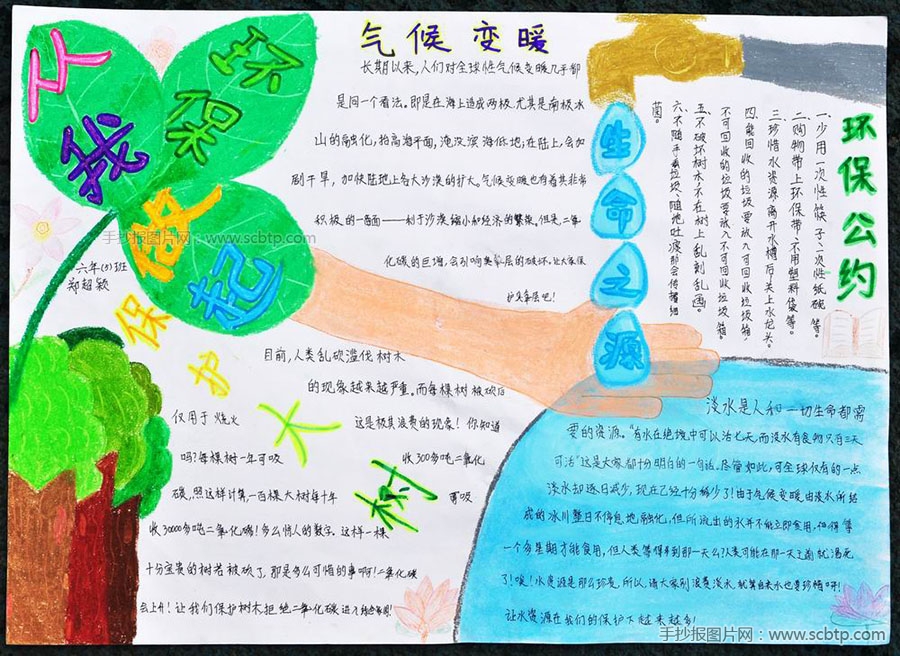 环保
我
做起
气候变暖
长期以来，人们对全球性气候变暖几乎都
是同一个看法。即是在海上造成两极，尤其是南极冰
山的融化，抬高海平面，淹没滨海低地；在陆上，会加
剧干旱，加快陆地上各大沙漠的扩大。气候变暖也有着其非常
积极的一面——利于沙漠缩小和经济的繁荣。但是，二氧
化碳的巨增，会影响臭氧层的破坏。让大家保
护臭氧层吧！
手抄报图片网：www.scbtp.com
六年(5)班
郑超颖
生命之源
环保公约
一.少用一次性筷子、一次性纸碗等。
二.购物带上环保带，不用塑料袋等。
三.珍惜水资源，离开水槽后关上水龙头。
四.能回收的垃圾要放入可回收垃圾箱，
不可回收的垃圾要放入不可回收垃圾箱。
五.不破坏树木，不在树上乱刻乱画。
六.不随手丢垃圾、随地吐痰都会传播细
菌。
保护大树
目前，人类乱砍滥伐树木
的现象越来越严重。而每棵树被砍后
仅用于烧火
这是极其浪费的现象！你知道
吗？每棵树一年可吸
收300多吨二氧化
碳，照这样计算，一百棵大树每十年
可吸
收30000多吨二氧化碳！多么惊人的数字。这样一棵
十分宝贵的树若被砍了，那是多么可惜的事啊！二氧化碳
会上升！让我们保护树木拒绝二氧化碳进入
淡水是人和一切生命都需
要的资源。“有水在绝境中可以活七天，而没水有食物只有三天
可活”这是大家都十分明白的一句话。尽管如此，可全球仅有的一点
淡水却逐日减少，现在已经十分稀少了！由于气候变暖，由淡水所结
成的冰川整日不停息地融化，但所流出的水并不能立即食用，但得等
一个多星期才能食用，但人类等得来到那一天么？人类可能在那一天之前就渴死
了！唉！水资源是那么珍贵，所以，请大家别浪费淡水，就算自来水也要珍惜呀！
让水资源在我们的保护下越来越多！
手抄报图片网：www.scbtp.com